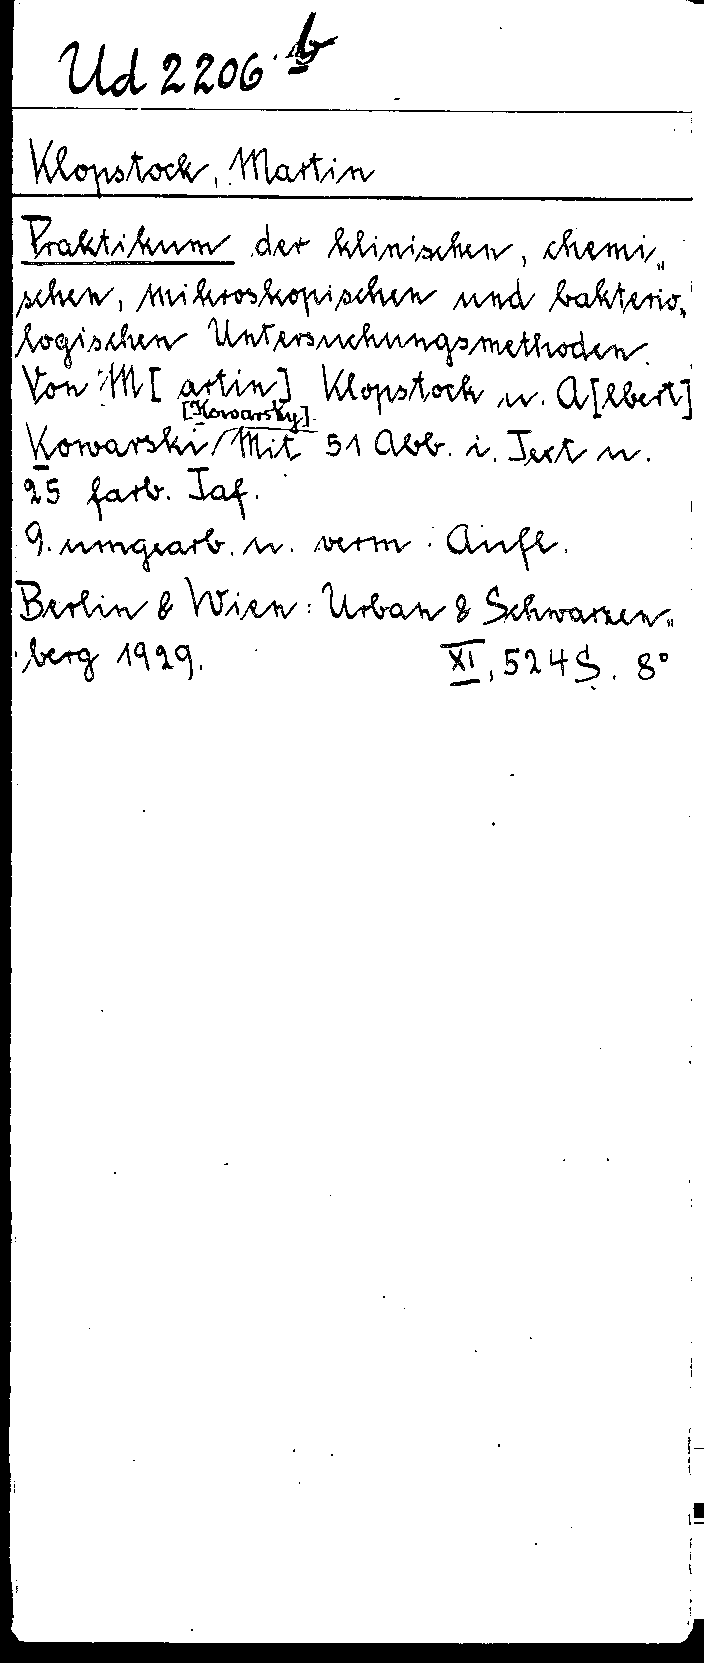 Ud 2206 b
Klopstock, Martin
Praktikum der klinischen, chemi„
schen, mikroskopischen und bakterio„
logischen Untersuchungsmethoden.
Von M[artin] Klopstock u. A[lbert]
[Kowarsky].
Kowarski/Mit 51 Abb. i. Text u.
25 farb. Taf.
9. umgearb. u. verm. Aufl.
Berlin & Wien: Urban & Schwarzen„
berg 1929. XI, 524 S. 8°